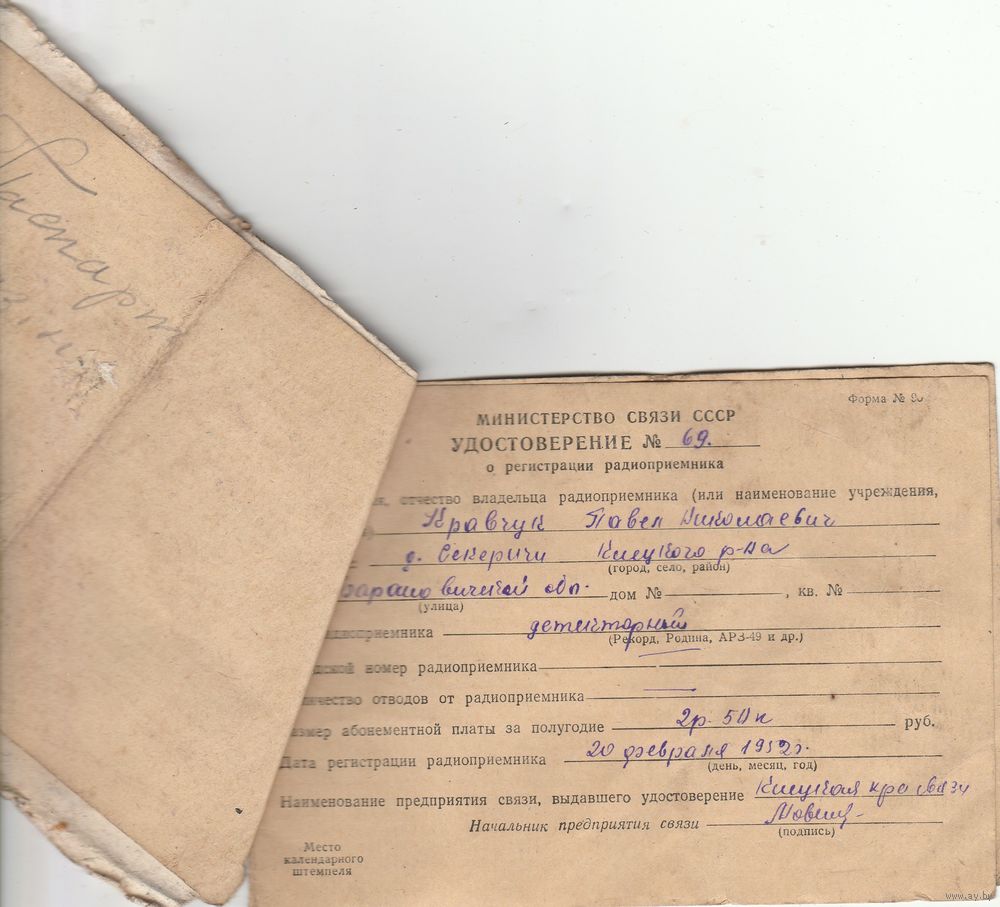 Паспарт
Форма № 90
МИНИСТЕРСТВО СВЯЗИ СССР
УДОСТОВЕРЕНИЕ № 69.
о регистрации радиоприемника
отчество владельца радиоприемника (или наименование учреждения,
Кравчук Павел Николаевич
д. Секеричи Клецкого р-на
(город, село, район)
обл. дом № , кв. №
(улица)
радиоприемника детекторный
(Рекорд, Родина, АРЗ-49 и др.)
номер радиоприемника
отводов от радиоприемника
абонементной платы за полугодие 2р-50к руб.
Дата регистрации радиоприемника 20 февраля 1952г.
(день, месяц, год)
Наименование предприятия связи, выдавшего удостоверение Клецкая связи
Начальник предприятия связи
(подпись)
Место
календарного
штемпеля
www.ay.by